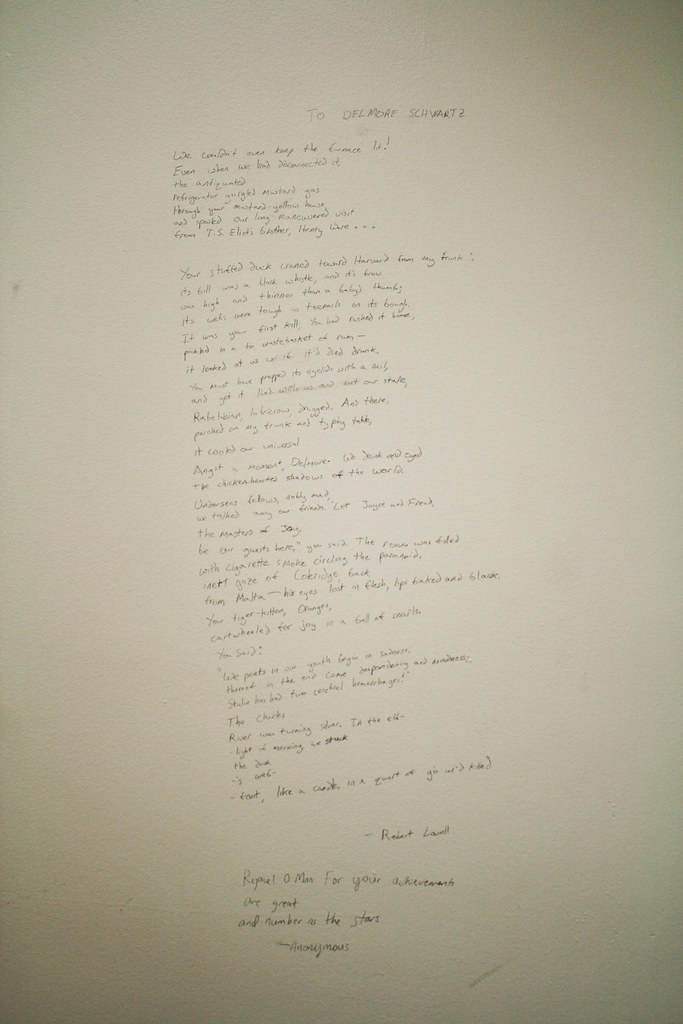 TO DELMORE SCHWARTZ
We couldn't even keep the furnace lit!
Even when we had disconnected it,
the antiquated
refrigerator gurgled mustard gas
through your mustard-yellow house,
and spoiled our long maneuvered visit
from T.S. Eliot's brother, Henry Ware . . .
Your stuffed duck craned toward Harvard from my trunk:
its bill was a black whistle, and its brow
was high and thinner than a baby's thumb;
its webs were tough as toenails on its bough.
It was your first kill; you had rushed it home,
pickled in a tin wastebasket of rum —
it looked at us as if it'd died drunk.
You must have propped its eyelids with a nail,
and yet it lived with us and met our stare,
Rabelaisian, lubricious, drugged. And there,
perched on my trunk and typing table,
it cooled our universal
Angst a moment, Delmore. We drank and eyed
the chickenhearted shadows of the world.
Underseas fellows, nobly mad,
we talked away our friends. "Let Joyce and Freud,
the Masters of Joy,
be our guests here," you said. The room was filled
with cigarette smoke circling the paranoid,
inert gaze of Coleridge, back
from Malta — his eyes lost in flesh, lips baked and black.
Your tiger-kitten, Oranges,
cartwheeled for joy in a ball of snarls.
You said:
"We poets in our youth begin in sadness;
thereof in the end come despondency and madness;
Stalin has had two cerebral hemorrhages!"
The Charles
River was turning silver. In the ebb-
-light of morning, we stuck
the duck
-'s web-
-foot, like a candle, in a quart of gin we'd killed
— Robert Lowell
O Man For your achievements
are great
and number as the stars
—Anonymous